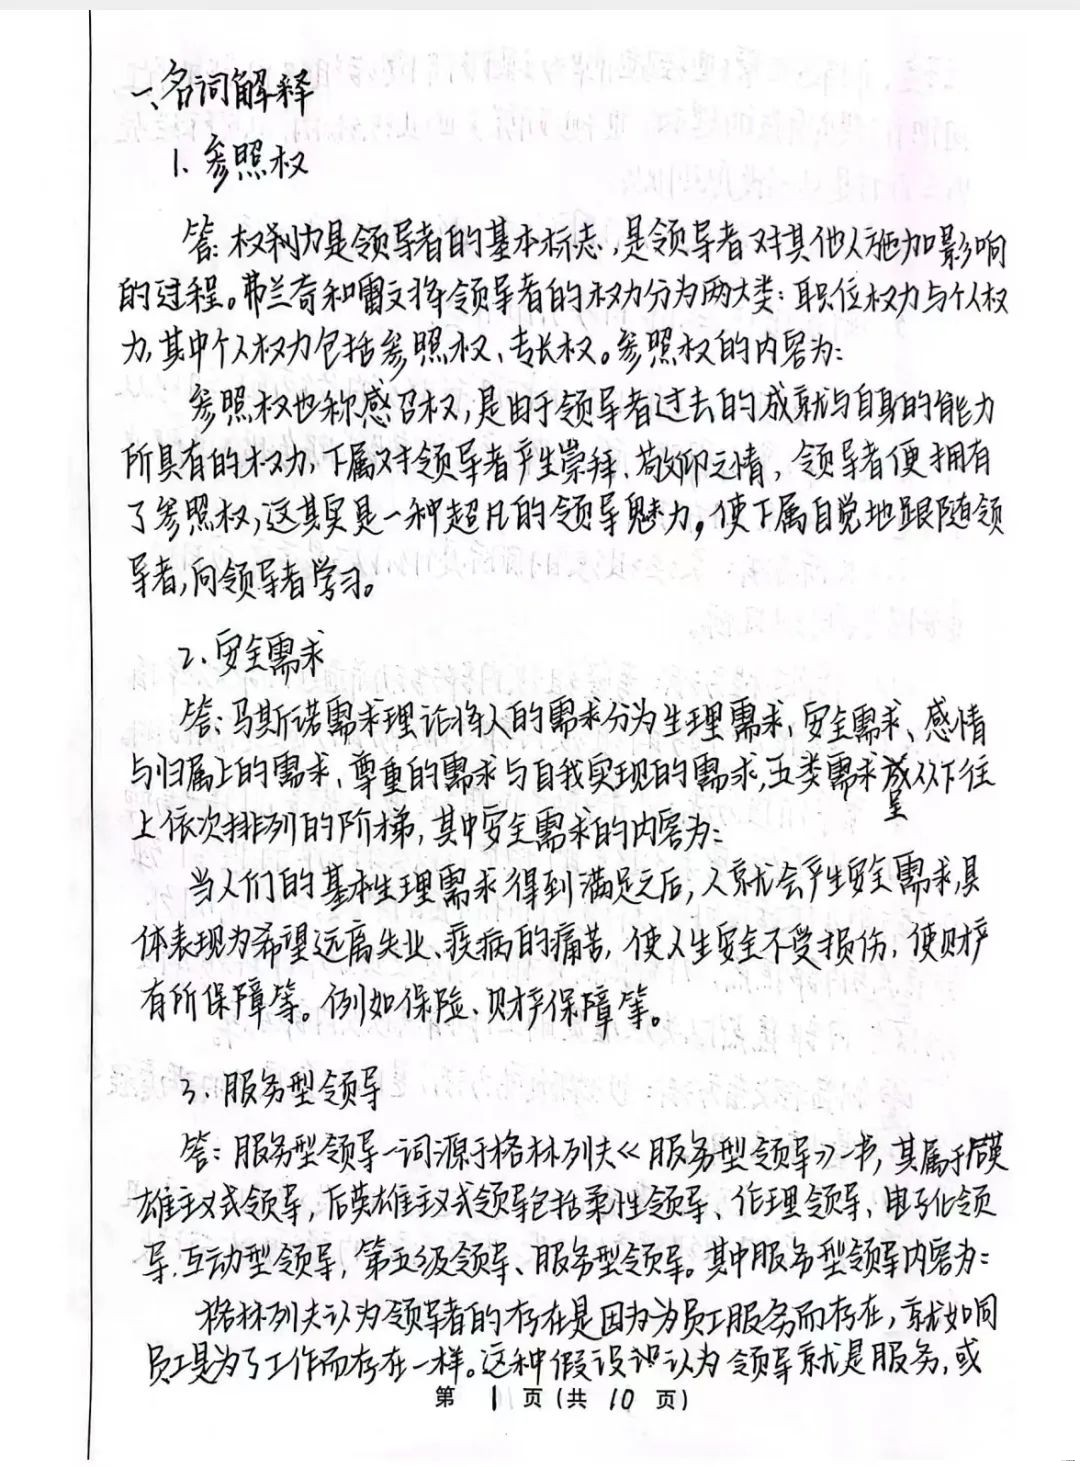 一、名词解释
1. 参照权
答：权利力是领导者的基本标志，是领导者对其他人施加影响
的过程。弗兰奇和雷文将领导者的权力分为两大类：职位权力与个人权
力，其中个人权力包括参照权、专长权。参照权的内容为：
参照权也称感召权，是由于领导者过去的成就与自身的能力
所具有的权力，下属对领导者产生崇拜、敬仰之情，领导者便拥有
了参照权，这其实是一种超凡的领导魅力。使下属自觉地跟随领
导者，向领导者学习。
2. 安全需求
答：马斯诺需求理论将人的需求分为生理需求，安全需求、感情
与归属上的需求、尊重的需求与自我实现的需求，五类需求呈从下往
上依次排列的阶梯，其中安全需求的内容为：
当人们的基本生理需求得到满足之后，人就会产生安全需求，具
体表现为希望远离失业、疾病的痛苦，使人生安全不受损伤，使财产
有所保障等。例如保险、财产保障等。
3. 服务型领导
答：服务型领导一词源于格林列夫《服务型领导》一书，其属于后英
雄主义式领导，后英雄主义式领导包括柔性领导、伦理领导、电子化领
导、互动型领导，第五级领导、服务型领导。其中服务型领导内容为：
格林列夫认为领导者的存在是因为为员工服务而存在，就如同
员工是为了工作而存在一样。这种假设识认为领导就是服务，或
第 1 页（共 10 页）